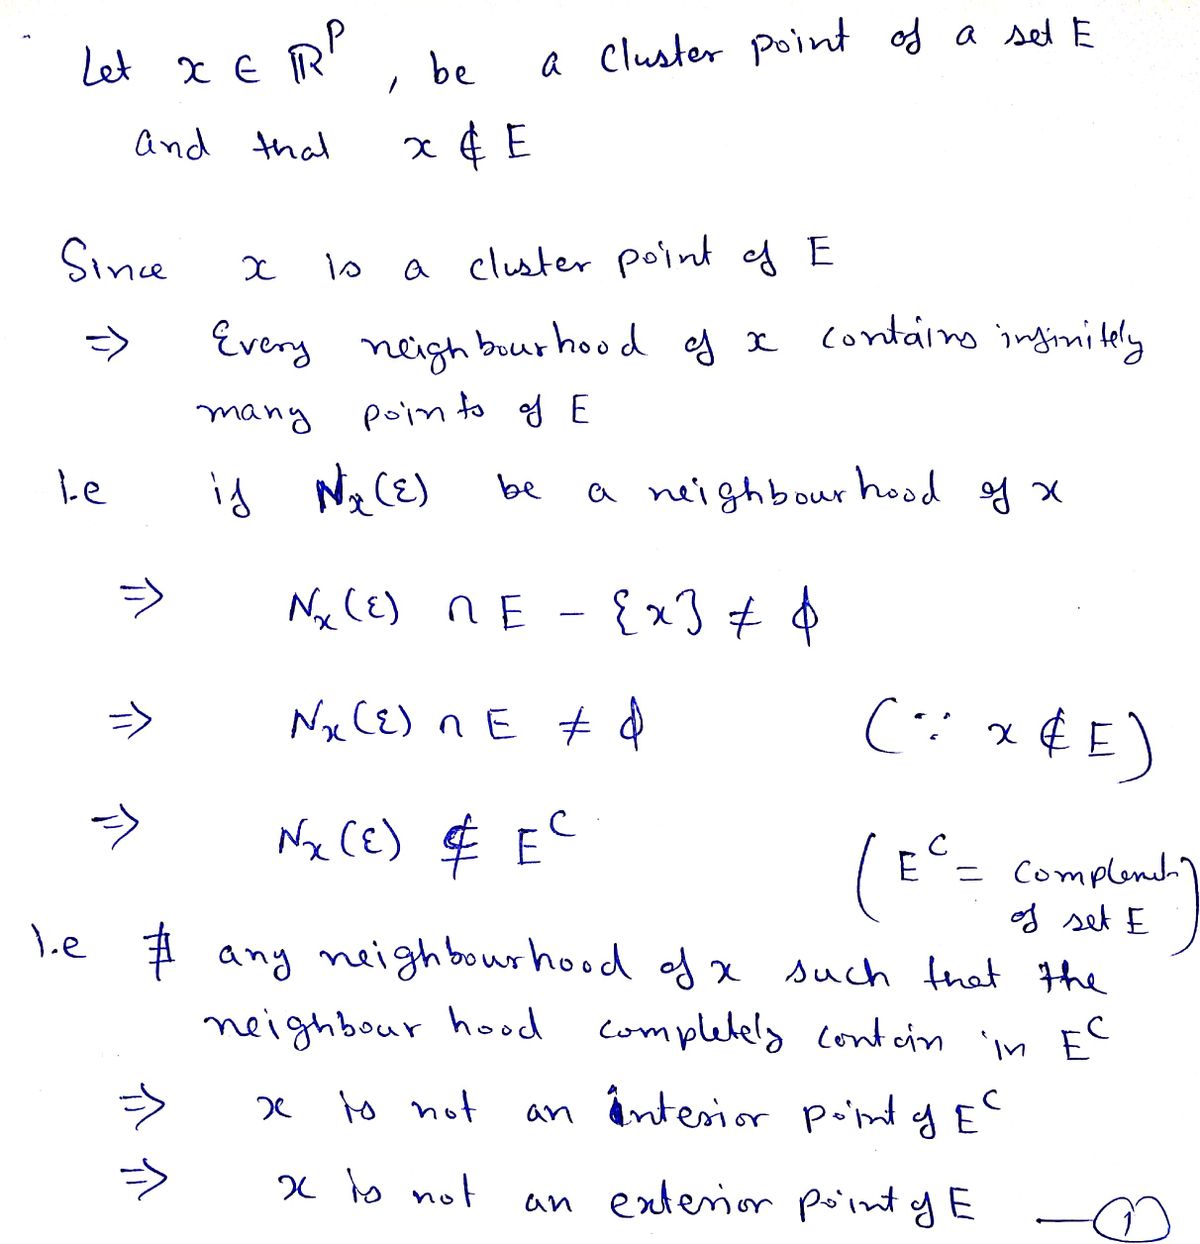 Let x ∈ ℝᵖ, be a cluster point of a set E
and that x ∉ E
Since x is a cluster point of E
⇒ Every neighbourhood of x contains infinitely
many points of E
i.e if Nₓ(ε) be a neighbourhood of x
⇒ Nₓ(ε) ∩ E - {x} ≠ ϕ
⇒ Nₓ(ε) ∩ E ≠ ϕ (∵ x ∉ E)
⇒ Nₓ(ε) ⊄ Eᶜ
(Eᶜ = complement
of set E)
i.e ∄ any neighbourhood of x such that the
neighbourhood completely contain in Eᶜ
⇒ x is not an interior point of Eᶜ
⇒ x is not an exterior point of E —①